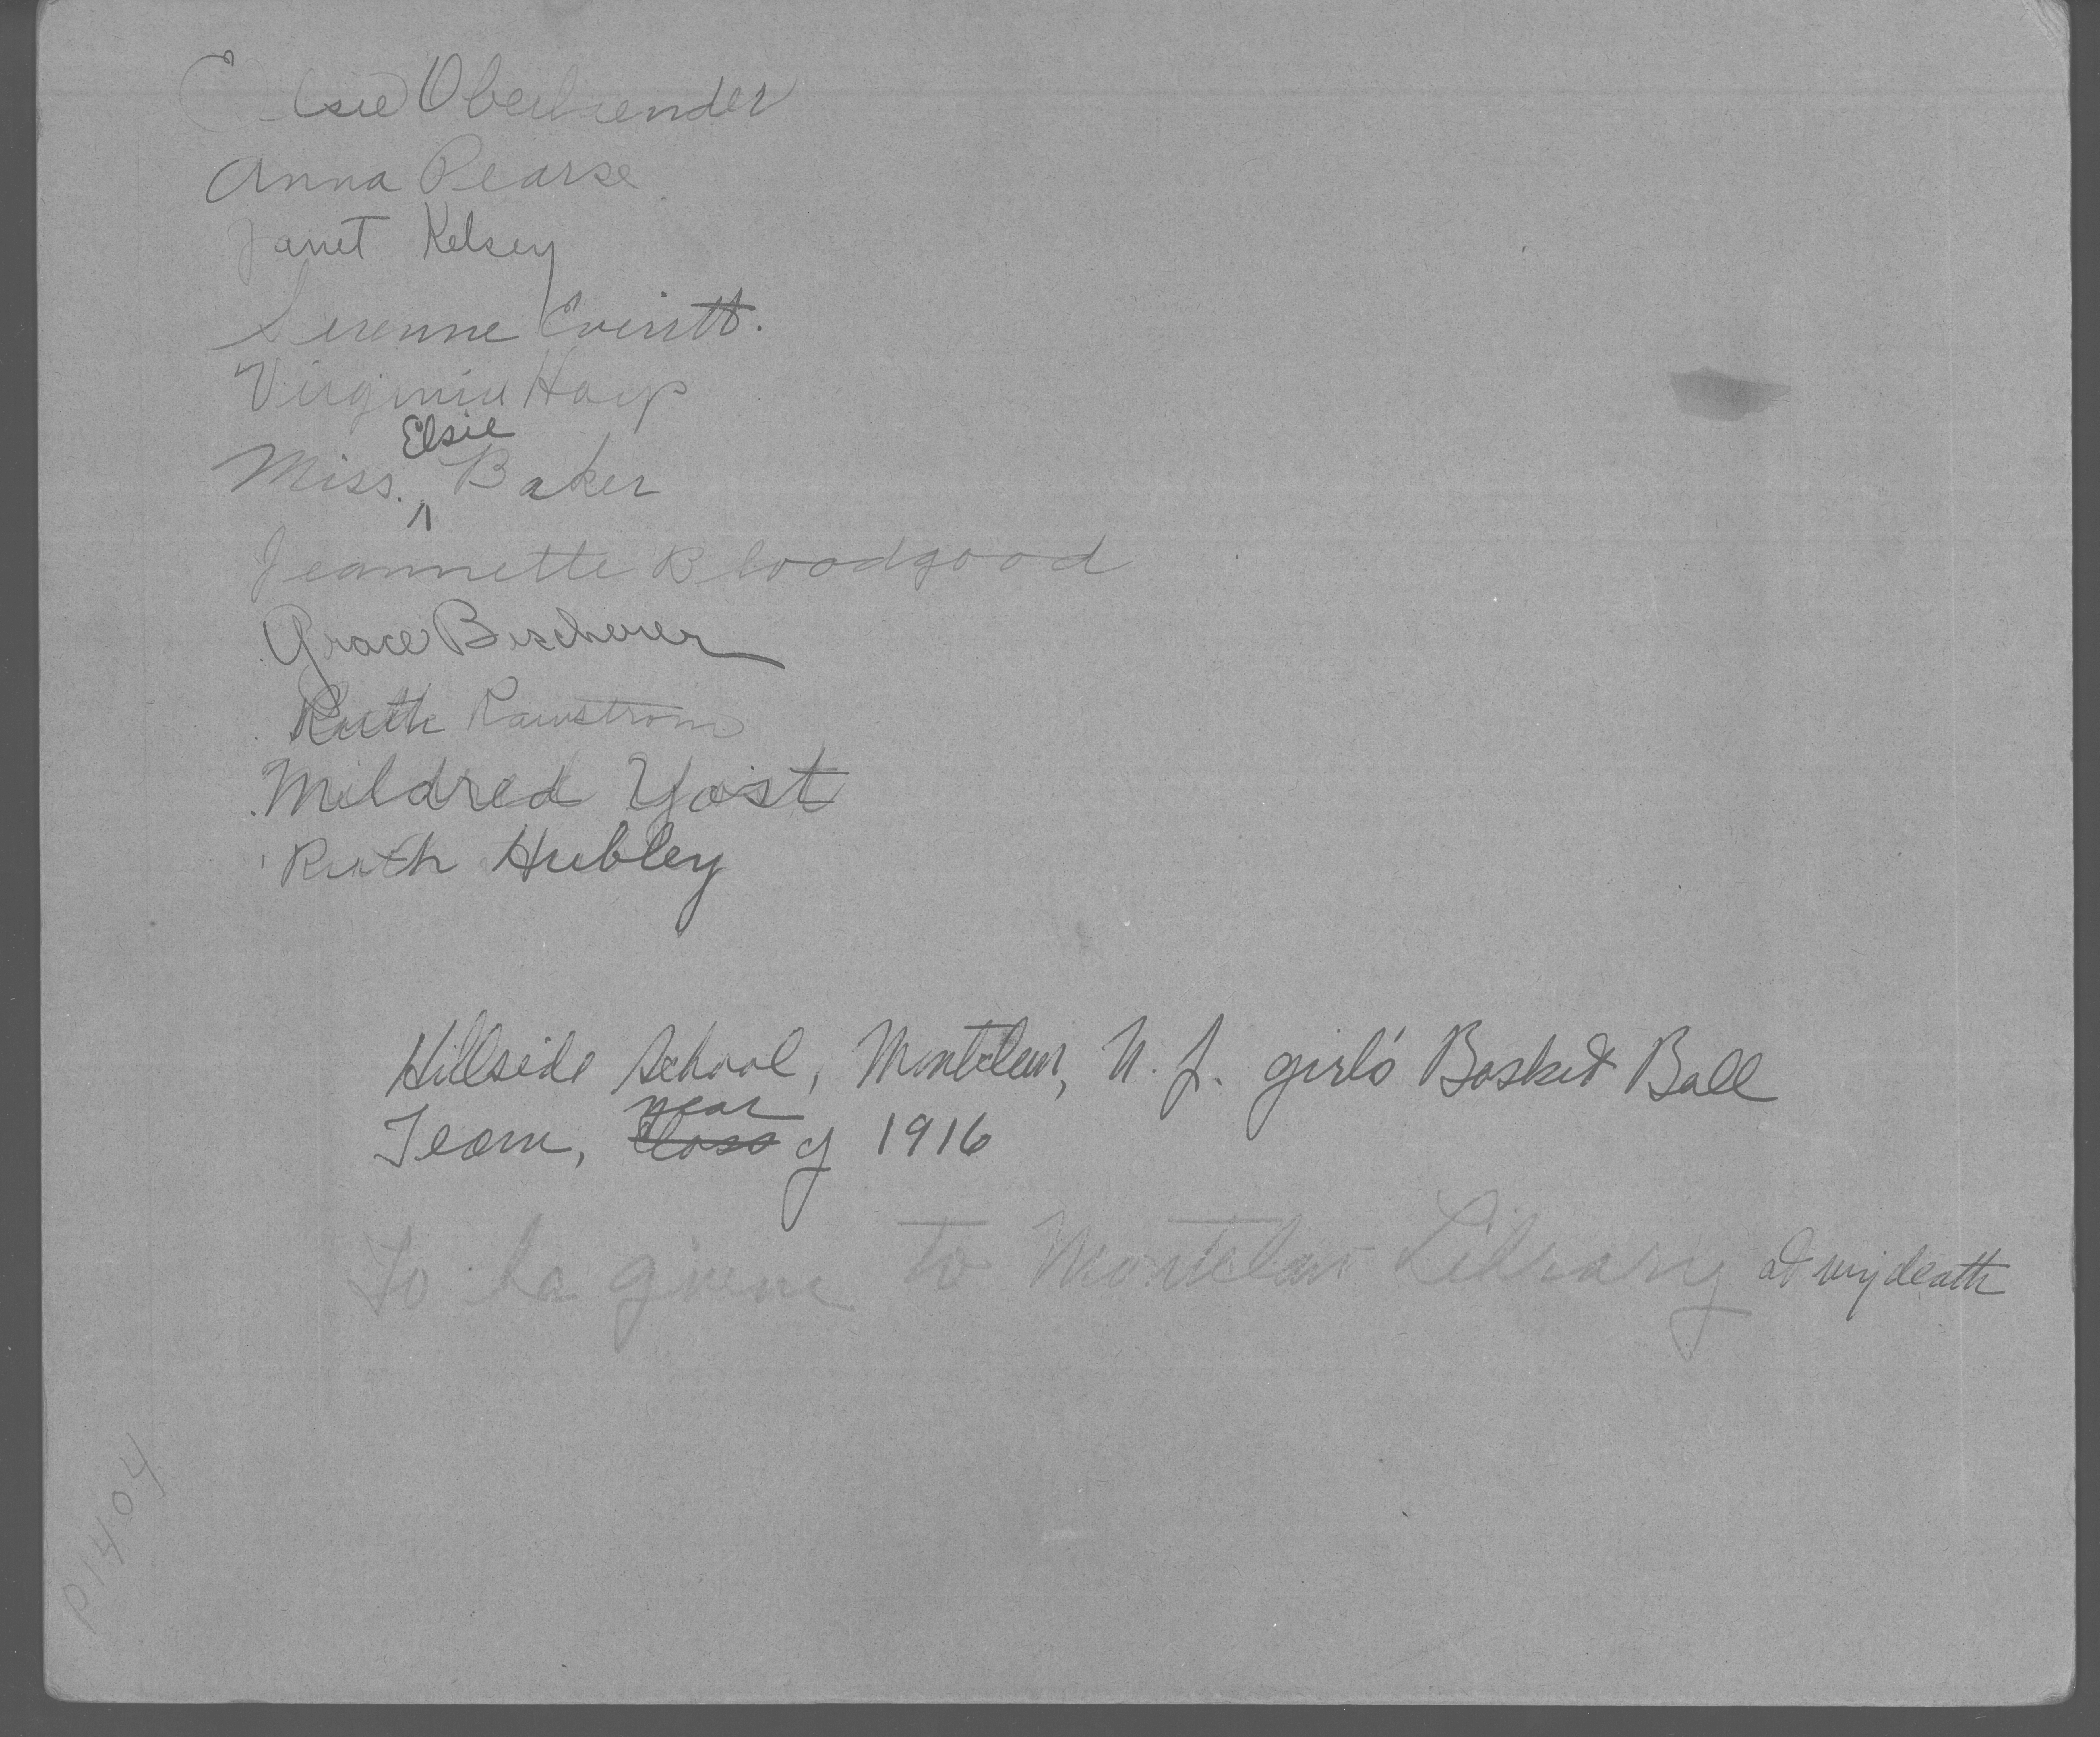 Elsie Oberbrender
Anna Pearse
Janet Kelsey
Serenne Everitt.
Virginia
Elsie
Miss. ^ Baker
Jeannette Bloodgood
Grace Bescherer
Ruth Rawstrom
Mildred Yost
Ruth Hubley
Hillside School, Montclair, N. J. girls' Basket Ball
year
Team, Class of 1916
To be given to Montclair Library at my death
P1404